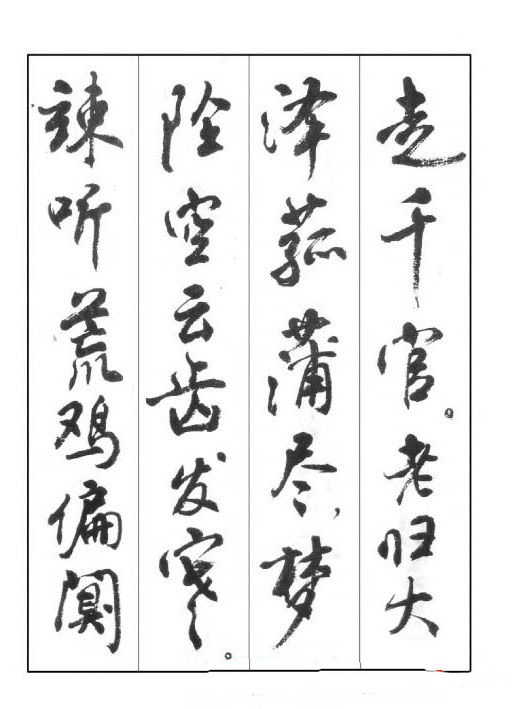 走千官。老归大
泽菰蒲尽，梦
坠空云齿发寒。
竦听荒鸡偏阒